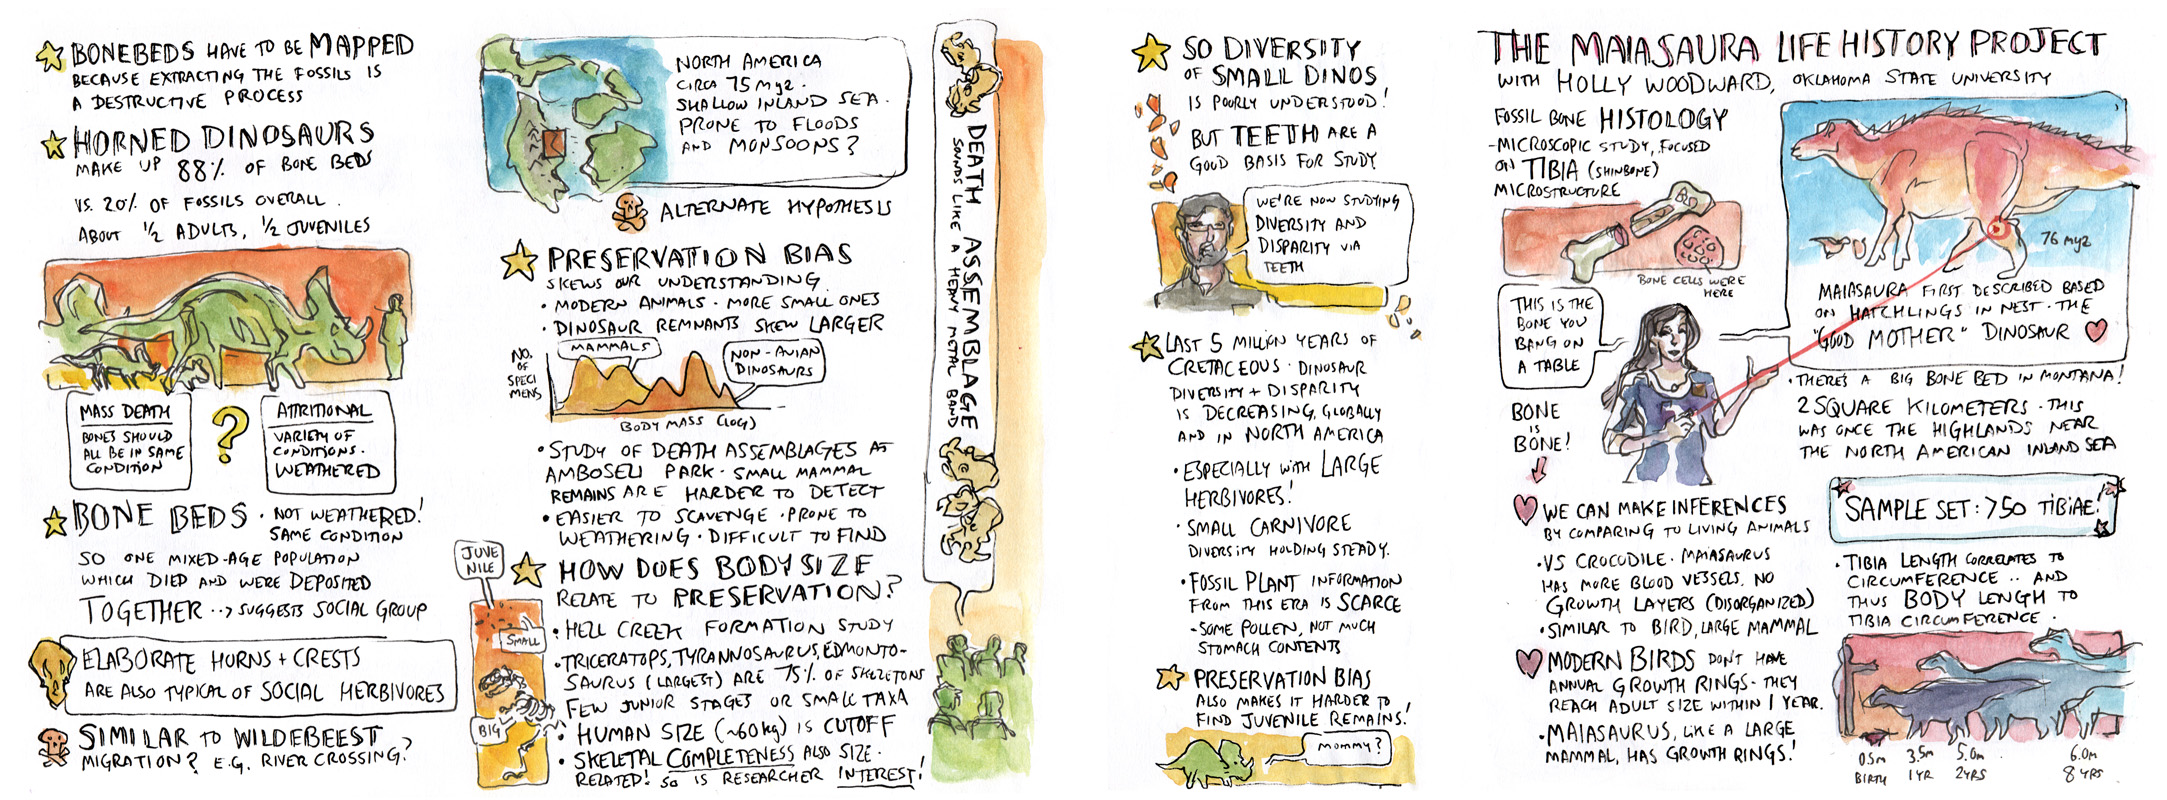 BONEBEDS HAVE TO BE MAPPED
BECAUSE EXTRACTING THE FOSSILS IS
A DESTRUCTIVE PROCESS
HORNED DINOSAURS
MAKE UP 88% OF BONE BEDS
VS. 20% OF FOSSILS OVERALL.
ABOUT 1/2 ADULTS, 1/2 JUVENILES
MASS DEATH
BONES SHOULD
ALL BE IN SAME
CONDITION
?
ATTRITIONAL
VARIETY OF
CONDITIONS.
WEATHERED
BONE BEDS · NOT WEATHERED!
SAME CONDITION
SO ONE MIXED-AGE POPULATION
WHICH DIED AND WERE DEPOSITED
TOGETHER ··> SUGGESTS SOCIAL GROUP
ELABORATE HORNS + CRESTS
ARE ALSO TYPICAL OF SOCIAL HERBIVORES
SIMILAR TO WILDEBEEST
MIGRATION? E.G. RIVER CROSSING?
NORTH AMERICA
CIRCA 75 MYA.
SHALLOW INLAND SEA.
PRONE TO FLOODS
AND MONSOONS?
ALTERNATE HYPOTHESIS
PRESERVATION BIAS
SKEWS OUR UNDERSTANDING.
· MODERN ANIMALS · MORE SMALL ONES
· DINOSAUR REMNANTS SKEW LARGER
NO.
OF
SPECI
MENS
MAMMALS
NON-AVIAN
DINOSAURS
BODY MASS (LOG)
· STUDY OF DEATH ASSEMBLAGES AT
AMBOSELI PARK · SMALL MAMMAL
REMAINS ARE HARDER TO DETECT
· EASIER TO SCAVENGE · PRONE TO
WEATHERING · DIFFICULT TO FIND
HOW DOES BODY SIZE
RELATE TO PRESERVATION?
JUVE
NILE
SMALL
BIG
· HELL CREEK FORMATION STUDY
· TRICERATOPS, TYRANNOSAURUS, EDMONTO-
SAURUS (LARGEST) ARE 75% OF SKELETONS
FEW JUNIOR STAGES OR SMALL TAXA
· HUMAN SIZE (~60kg) IS CUTOFF
· SKELETAL COMPLETENESS ALSO SIZE-
RELATED! SO IS RESEARCHER INTEREST!
DEATH ASSEMBLAGE
SOUNDS LIKE A HEAVY METAL BAND
SO DIVERSITY
OF SMALL DINOS
IS POORLY UNDERSTOOD!
BUT TEETH ARE A
GOOD BASIS FOR STUDY
WE'RE NOW STUDYING
DIVERSITY AND
DISPARITY VIA
TEETH
LAST 5 MILLION YEARS OF
CRETACEOUS · DINOSAUR
DIVERSITY + DISPARITY
IS DECREASING, GLOBALLY
AND IN NORTH AMERICA
· ESPECIALLY WITH LARGE
HERBIVORES!
· SMALL CARNIVORE
DIVERSITY HOLDING STEADY.
· FOSSIL PLANT INFORMATION
FROM THIS ERA IS SCARCE
- SOME POLLEN, NOT MUCH
STOMACH CONTENTS
PRESERVATION BIAS
ALSO MAKES IT HARDER TO
FIND JUVENILE REMAINS!
MOMMY?
THE MAIASAURA LIFE HISTORY PROJECT
WITH HOLLY WOODWARD, OKLAHOMA STATE UNIVERSITY
FOSSIL BONE HISTOLOGY
- MICROSCOPIC STUDY, FOCUSED
ON TIBIA (SHINBONE)
MICROSTRUCTURE
BONE CELLS WERE
HERE
THIS IS THE
BONE YOU
BANG ON
A TABLE
BONE
IS
BONE!
WE CAN MAKE INFERENCES
BY COMPARING TO LIVING ANIMALS
· VS CROCODILE · MAIASAURUS
HAS MORE BLOOD VESSELS, NO
GROWTH LAYERS (DISORGANIZED)
· SIMILAR TO BIRD, LARGE MAMMAL
MODERN BIRDS DON'T HAVE
ANNUAL GROWTH RINGS - THEY
REACH ADULT SIZE WITHIN 1 YEAR.
· MAIASAURUS, LIKE A LARGE
MAMMAL, HAS GROWTH RINGS!
76 MYA
MAIASAURA FIRST DESCRIBED BASED
ON HATCHLINGS IN NEST · THE
"GOOD MOTHER" DINOSAUR
· THERE'S A BIG BONE BED IN MONTANA!
2 SQUARE KILOMETERS · THIS
WAS ONCE THE HIGHLANDS NEAR
THE NORTH AMERICAN INLAND SEA
SAMPLE SET: >50 TIBIAE!
· TIBIA LENGTH CORRELATES TO
CIRCUMFERENCE ·· AND
THUS BODY LENGTH TO
TIBIA CIRCUMFERENCE.
0.5m
BIRTH
3.5m
1 YR
5.0m
2 YRS
6.0m
8 YRS